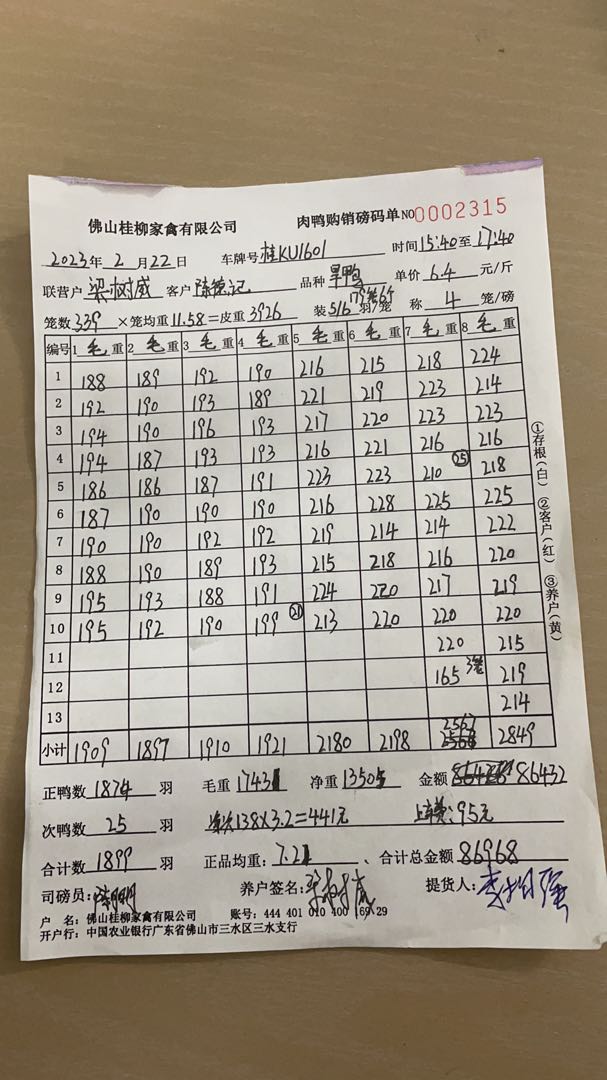 佛山桂柳家禽有限公司 肉鸭购销磅码单 NO 0002315
2023年 2 月 22 日 车牌号 桂KU1601 时间 15:40 至 17:40
联营户 梁树威 客户 陈德记 品种 旱鸭 单价 6.4 元/斤
笼数 339 ×笼均重 11.58 =皮重 3926 装 5/6 羽/笼 称 4 笼/磅
编号 1 毛 重 2 毛 重 3 毛 重 4 毛 重 5 毛 重 6 毛 重 7 毛 重 8 毛 重
1 188 189 192 190 216 215 218 224
2 192 190 193 189 221 219 223 214
3 194 190 196 193 217 220 223 223
4 194 187 193 193 216 221 216 216
5 186 186 187 191 223 223 210 25 218
6 187 190 190 190 216 228 225 225
7 190 190 192 192 219 214 214 222
8 188 190 189 193 215 218 216 220
9 195 193 188 191 224 220 217 219
10 195 192 190 199 21 213 220 220 220
11 220 215
12 165 3笼 219
13 214
小计 1909 1897 1910 1921 2180 2198 2567 2849
正鸭数 1874 羽 毛重 17431 净重 13505 金额 86432
次鸭数 25 羽 138×3.2=441元 95元
合计数 1899 羽 正品均重: 7.21 、合计总金额 86968
司磅员: 养户签名: 提货人:
户 名: 佛山桂柳家禽有限公司 账号: 444 401 010 400 169 29
开户行: 中国农业银行广东省佛山市三水区三水支行
①存根(白) ②客户(红) ③养户(黄)